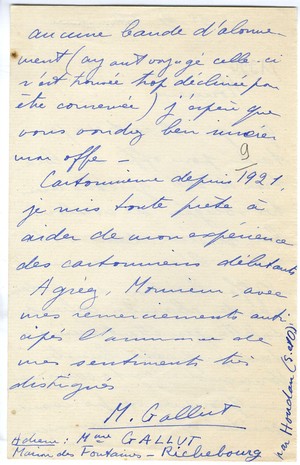 aucune bande d'abonne-
ment (ayant voyagé celle-ci
s'est trouvée trop déchirée pour
être conservée) j'espère que
vous voudrez bien insérer
mon offre —
9
Cartonnienne depuis 1921,
je suis toute prête à
aider de mon expérience
des cartonniens débutants
Agréez, Monsieur, avec
mes remerciements anti-
cipés l'assurance de
mes sentiments très
distingués
M. Gallut
Adresse : Mme GALLUT
Maison des Fontaines - Richebourg
par Houdan (S.etO)